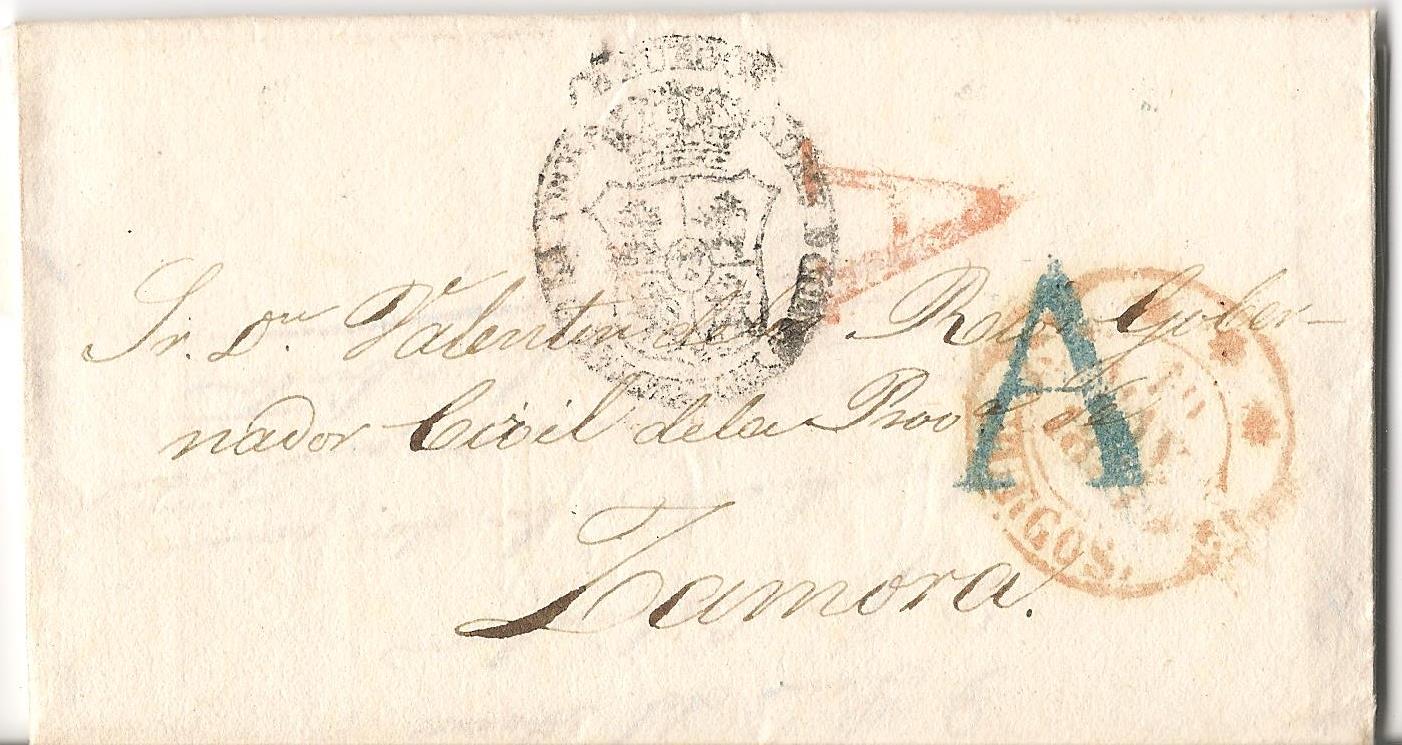 A
Sr. Dn. Valentin de los Rios Gober-
nador Civil dela Prov.a de
Zamora.
A
BURGOS.